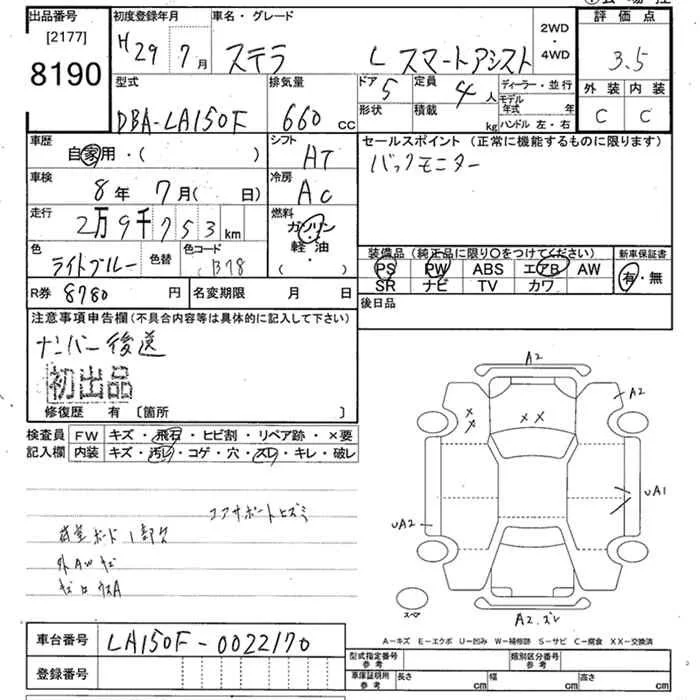 出品番号
[2177]
8190
初度登録年月
H29 7月
車名・グレード
ステラ L スマートアシスト
2WD
・
4WD
評価点
3.5
外装 内装
C C
型式
DBA-LA150F
排気量
660 cc
ドア
5
形状
定員
4人
積載
kg
ディーラー・並行
モデル年式 年
ハンドル 左・右
車歴
自家用・( )
シフト
AT
セールスポイント (正常に機能するものに限ります)
バックモニター
車検
8年 7月( 日)
冷房
AC
走行
2万9千753km
燃料
ガソリン
・
軽油
( )
色
ライトブルー
色替
色コード
B78
装備品 (純正品に限り〇をつけてください)
PS PW ABS エアB AW
SR ナビ TV カワ
新車保証書
有・無
R券 8780円
名変期限 月 日
後日品
注意事項申告欄(不具合内容等は具体的に記入して下さい)
ナンバー後送
初出品
修復歴 有 〔箇所 〕
検査員
記入欄
FW キズ・飛石・ヒビ割・リペア跡・×要
内装 キズ・汚レ・コゲ・穴・スレ・キレ・破レ
コアサポートヒズミ
外AWキズ
A2
A2
××
××
UA1
UA2
A2.ズレ
スペア
A−キズ E−エクボ U−凹み W−補修跡 S−サビ C−腐食 XX−交換済
車台番号 LA150F-0022170
登録番号
型式指定番号
参考
類別区分番号
参考
車庫証明用
参考
長さ cm 幅 cm 高さ cm